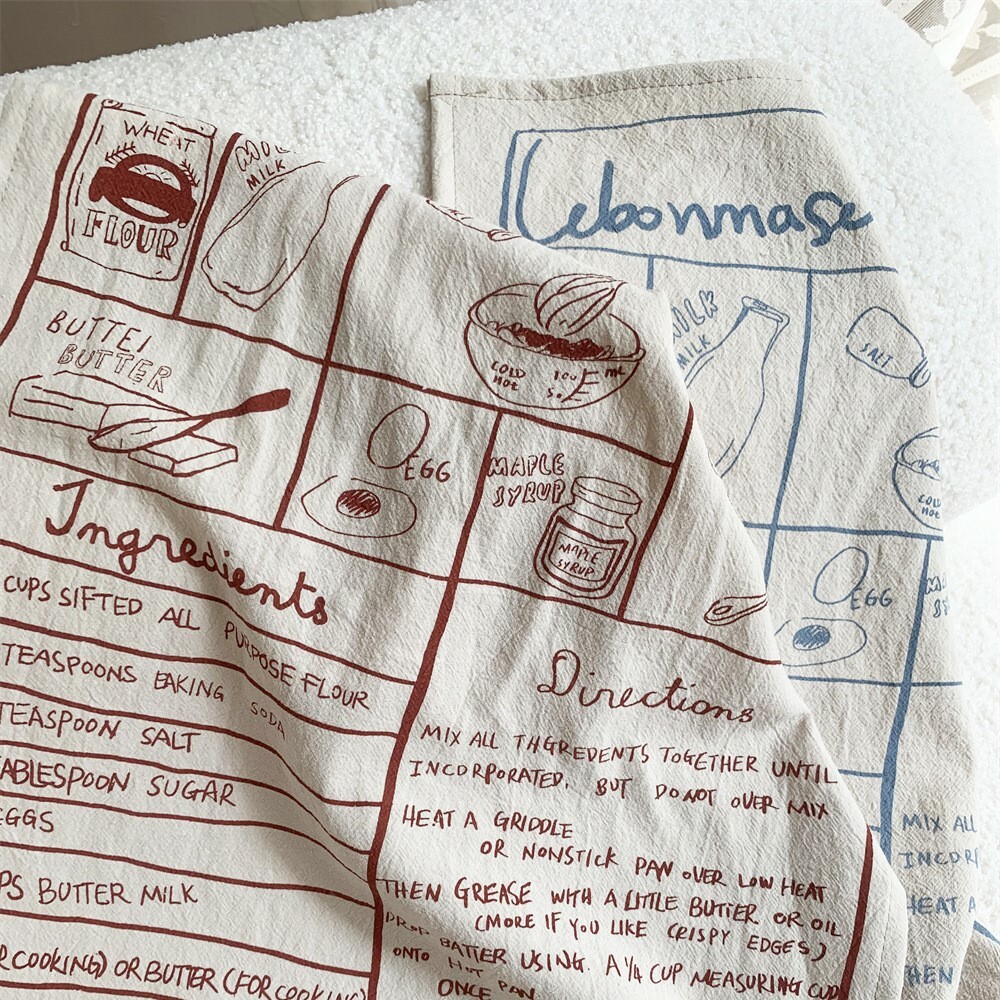 WHEAT
FLOUR
MILK
BUTTEI
BUTTER
EGG
COLD
HOT
100
50
ml
MAPLE
SYRUP
MAPLE
SYRUP
Ingredients
CUPS SIFTED ALL PURPOSE FLOUR
TEASPOONS BAKING SODA
TEASPOON SALT
ABLESPOON SUGAR
EGGS
PS BUTTER MILK
R COOKING) OR BUTTER (FOR COOKING)
Directions
MIX ALL THGREDENTS TOGETHER UNTIL
INCORPORATED, BUT DO NOT OVER MIX
HEAT A GRIDDLE
OR NONSTICK PAN OVER LOW HEAT
THEN GREASE WITH A LITTLE BUTTER OR OIL
(MORE IF YOU LIKE CRISPY EDGES)
DROP BATTER USING. A 1/4 CUP MEASURING CUP
ONTO HOT PAN
ONCE
Lebonmase
MILK
MILK
SALT
COLD
HOT
EGG
MIX ALL
INCOR
HEAT A
HEN